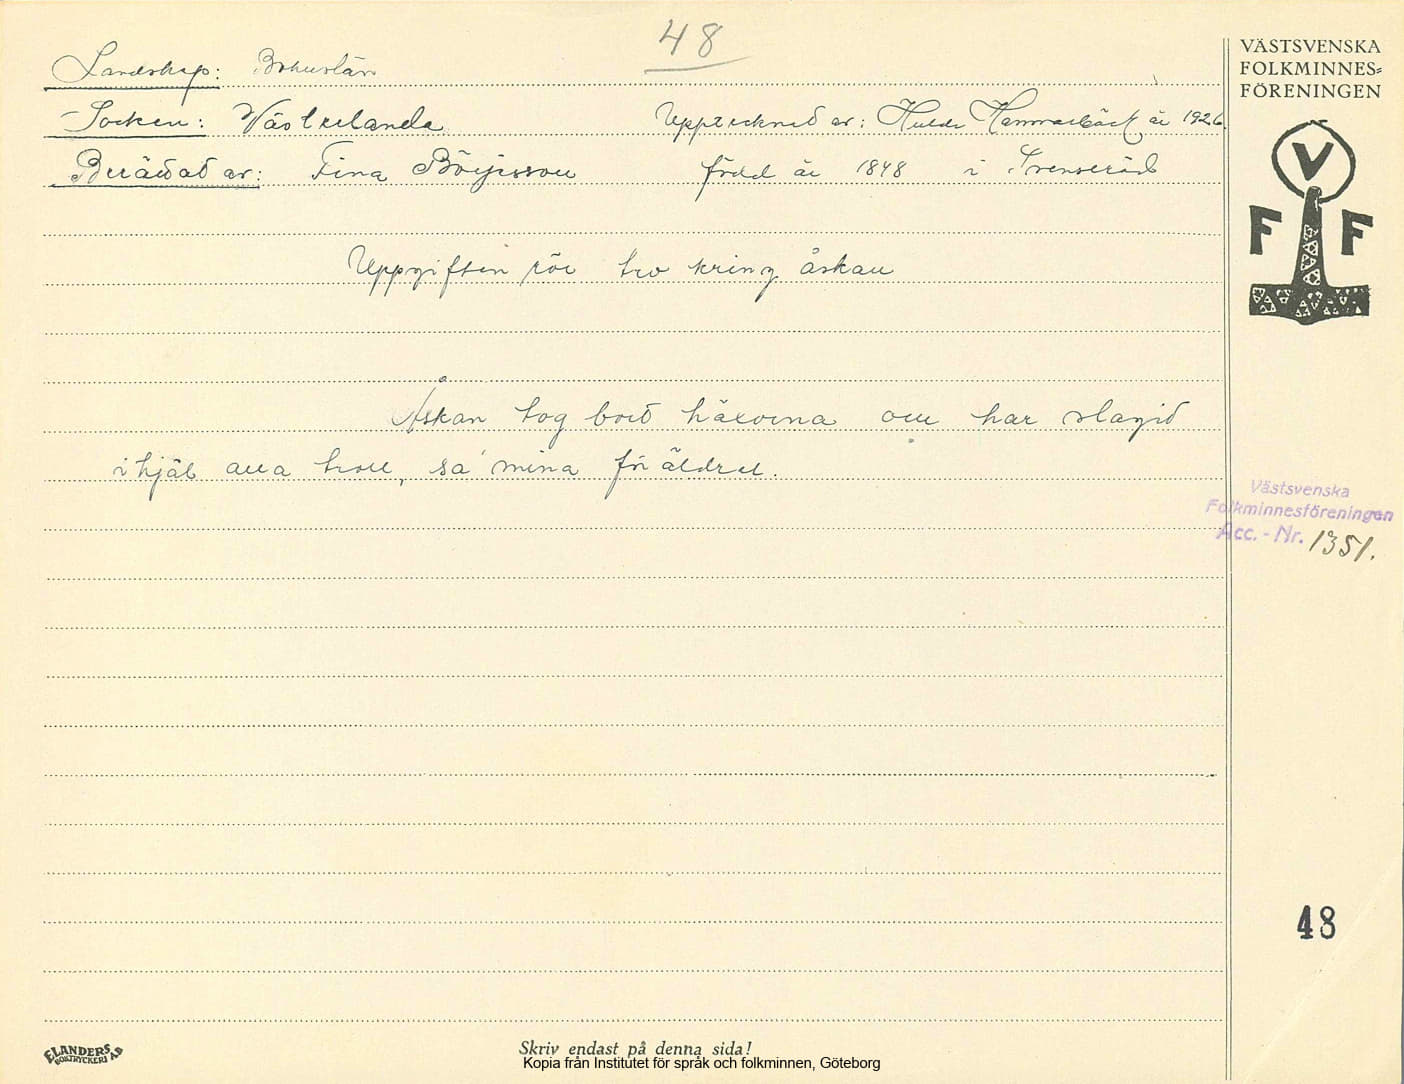 48
Landskap: Bohuslän
Socken: Västerlanda Upptecknad av: Hulda Hammarbäck år 1926.
Berättat av: Tina Börjesson född år 1848 i Svenseröd
Uppgiften rör tro kring åskan
Åskan tog bort häxorna och har slagit
ihjäl alla troll, sa' mina föräldrar.
VÄSTSVENSKA
FOLKMINNES=
FÖRENINGEN
V
F F
Västsvenska
Folkminnesföreningen
Acc.-Nr. 1351.
48
ELANDERS
BOKTRYCKERI AB
Skriv endast på denna sida!
Kopia från Institutet för språk och folkminnen, Göteborg